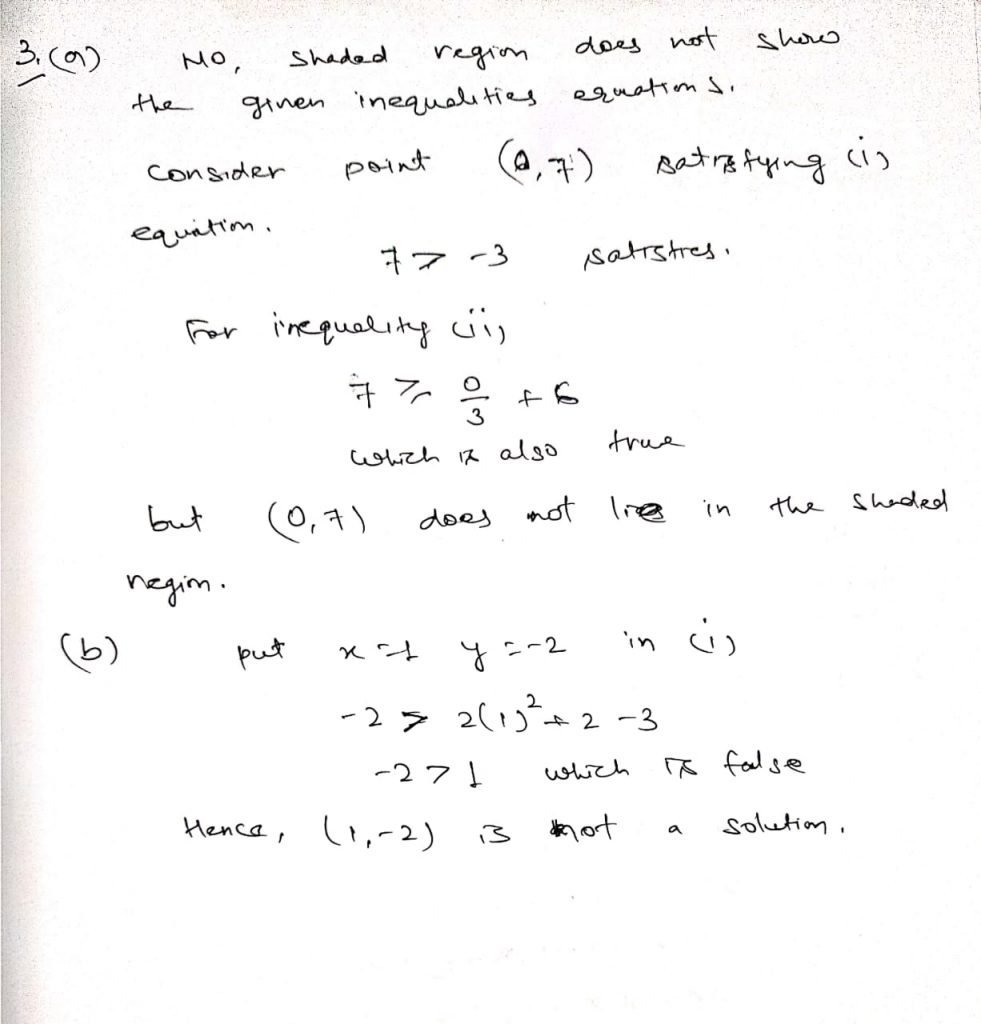 3. (a) No, shaded region does not show
the given inequalities equations.
consider point (0,7) satisfying (i)
equation.
7 > -3 satisfies.
For inequality (ii)
7 ≥ 0/3 + 6
which is also true
but (0,7) does not lies in the shaded
region.
(b) put x=1 y=-2 in (i)
-2 > 2(1)² + 2 - 3
-2 > 1 which is false
Hence, (1,-2) is not a solution.